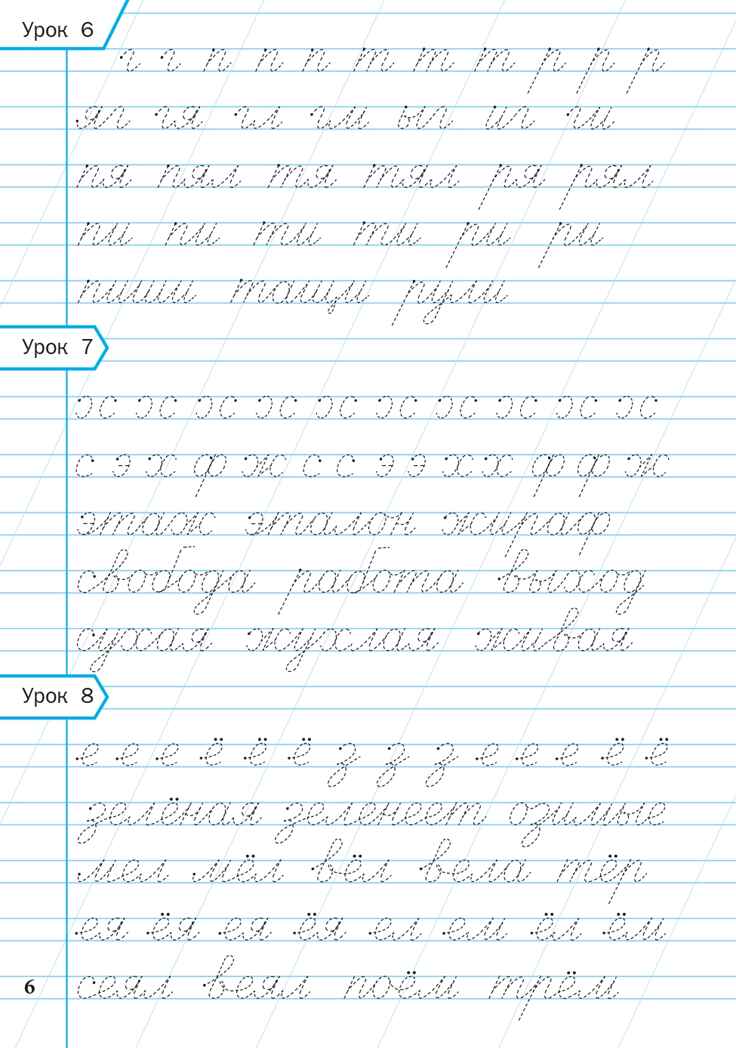 Урок 6
г г п п п т т т р р р
яг гя гл гм ып ип ги
пя пял тя тял ря рял
пи пи ти ти ри ри
пиши тащи рули
Урок 7
ɔс ɔс ɔс ɔс ɔс ɔс ɔс ɔс ɔс ɔс
с э х ф ж с с э э х х ф ф ж
этаж эталон жираф
свобода работа выход
сухая жухлая живая
Урок 8
е е е ё ё ё з з з е е е ё ё
зелёная зеленеет озимые
мел мёл вёл вела тёр
ея ёя ея ёя ел ем ёл ём
6 сеял веял поём трём